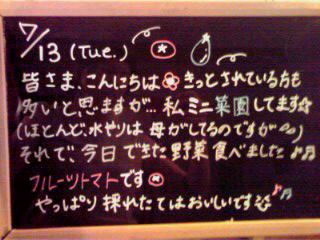 7/13 (Tue.)
皆さま、こんにちは きっとされている方も
多いと思いますが… 私ミニ菜園してます☆
(ほとんど水やりは 母がしてるのですが)
それで、今日できた野菜食べました♪♬
フルーツトマトです
やっぱり採れたてはおいしいです♪♬